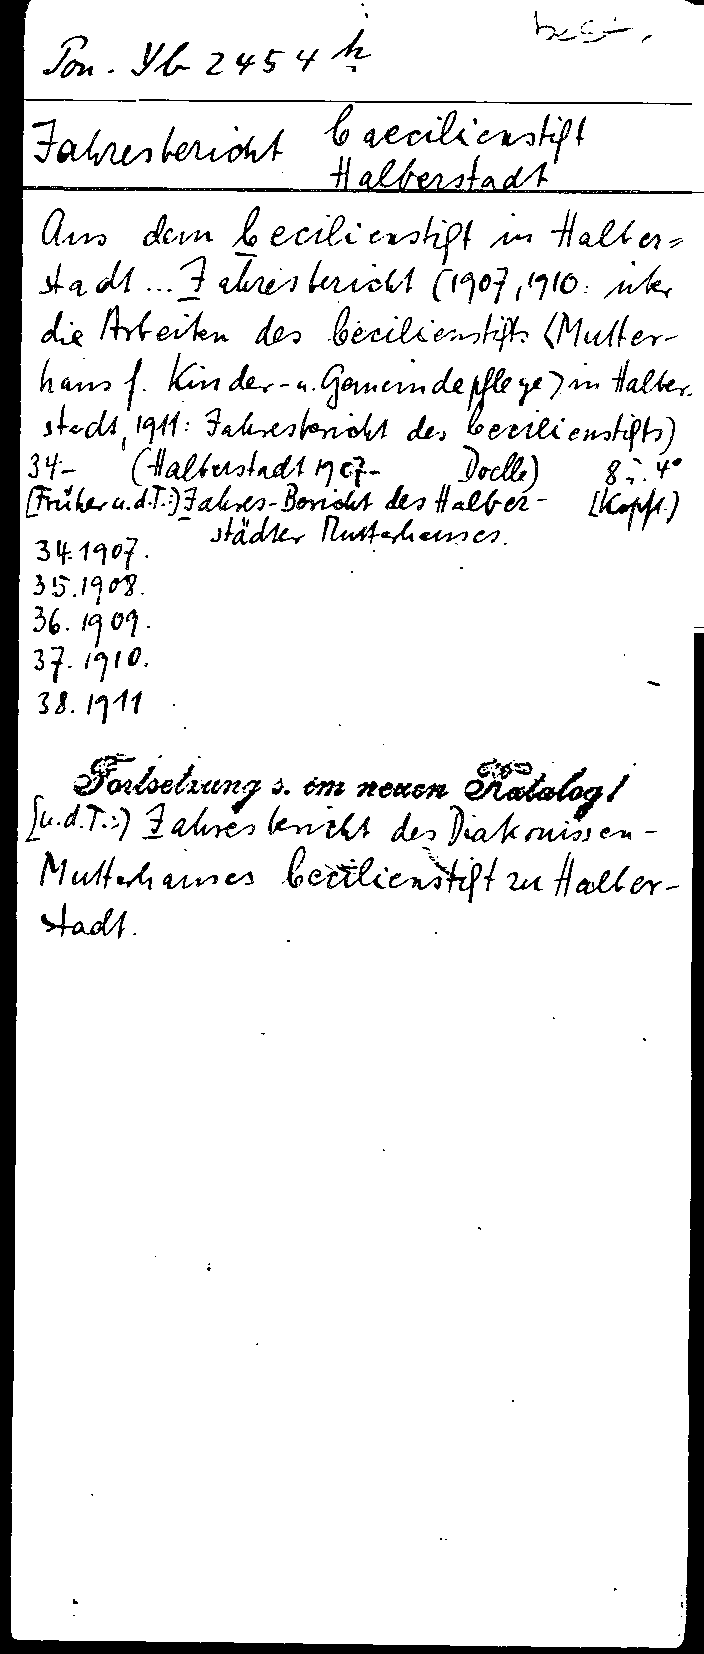 Pon. Yb 2454 h
Jahresbericht Caecilienstift
Halberstadt
Aus dem Cecilienstift in Halber=
stadt ... Jahresbericht (1907, 1910: über
die Arbeiten des Cecilienstifts <Mutter-
haus f. Kinder- u. Gemeindepflege> in Halber-
stadt, 1911: Jahresbericht des Cecilienstifts)
34- (Halberstadt 1907- Doelle) 8 : 4°
[Früher u.d.T.:) Jahres-Bericht des Halber- [Kopft.)
städter Mutterhauses.
34. 1907.
35. 1908.
36. 1909.
37. 1910.
38. 1911
Fortsetzung s. im neuen Katalog!
[u.d.T.:) Jahresbericht des Diakonissen-
Mutterhauses Cecilienstift zu Halber-
stadt.